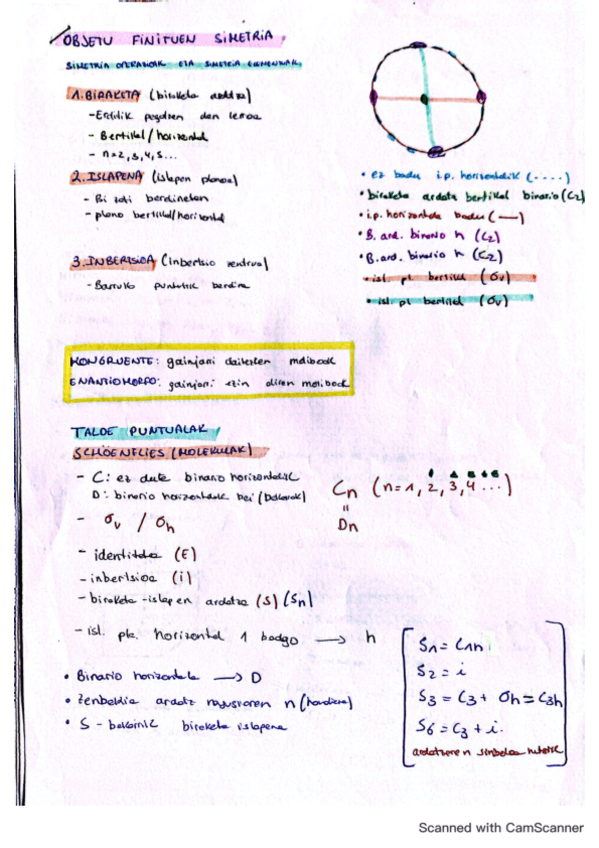 OBJETU FINITUEN SIMETRIA
SIMETRIA OPERAZIOAK ETA SIMETRIA ELEMENTUAK
1. BIRAKETA (biraketa ardatza)
- Erditik pasatzen den lerroa
- Bertikal/horizontal
- n=2,3,4,5...
2. ISLAPENA (islapen planoa)
- Bi zati berdinetan
- plano bertikal/horizontal
3. INBERTSIOA (Inbertsio zentrua)
- Barruko puntutik berdina
• ez badu i.p. horizontalik (----)
• biraketa ardatz bertikal binario (C2)
• i.p. horizontala badu (—)
• B. ard. binario h (C2)
• B. ard. binario h (C2)
• isl. pl bertikal (σv)
• isl. pl bertikal (σv)
KONGRUENTE: gainjarri daitezken
ENANTIOMORFO: gainjarri ezin diren
TALDE PUNTUALAK
SCHÖENFLIES (MOLEKULAK)
- C: ez dute binario horizontalik
D: binario horizontalak bai
- σv / σh
- identitatea (E)
- inbertsioa (i)
- biraketa-islapen ardatza (S) (Sn)
- isl. pla. horizontal 1 badago → h
Cn (n=1, 2, 3, 4 ...)
=
Dn
• Binario horizontala → D
• Zenbakia ardatz nagusiaren n (handiena)
• S - bakoinik biraketa islapena
S1 = C1h
S2 = i
S3 = C3 + σh = C3h
S6 = C3 + i.
ardatzaren sinboloa
Scanned with CamScanner